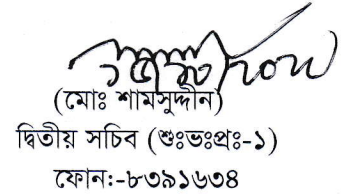 (মোঃ শামসুদ্দীন)
দ্বিতীয় সচিব (শুঃভঃপ্রঃ-১)
ফোন:-৮৩৯১৬৩৪